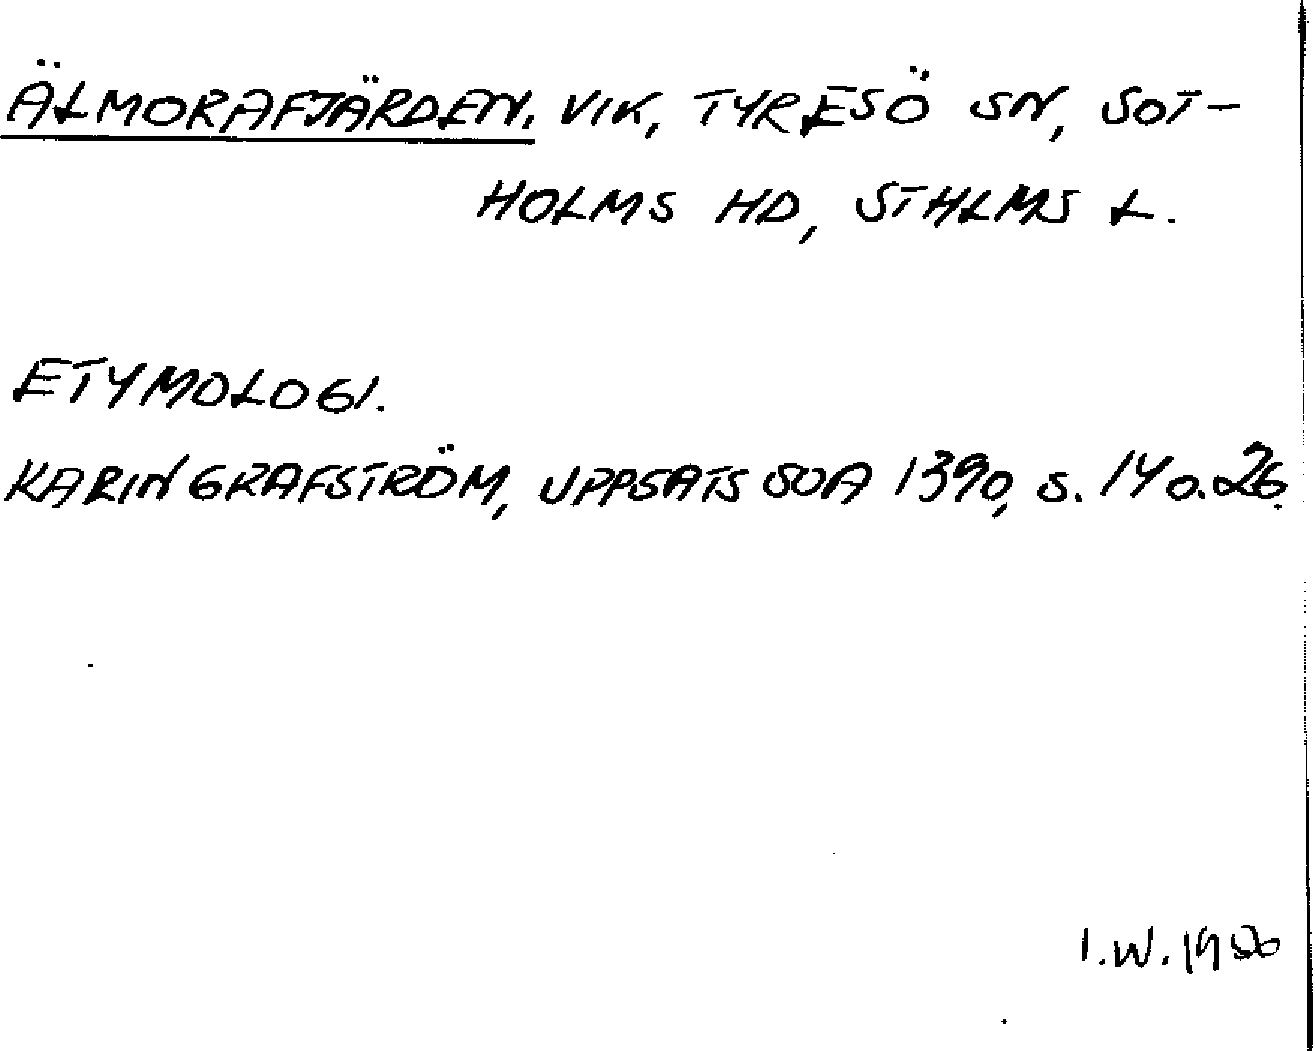 ÄLMORAFJÄRDEN. VIK, TYRESÖ SN, SOT-
HOLMS HD, STHLMS L.
ETYMOLOGI.
KARIN GRAFSTRÖM, UPPSATS SOA 1390, S. 14 O. 26.
I.W. 1986